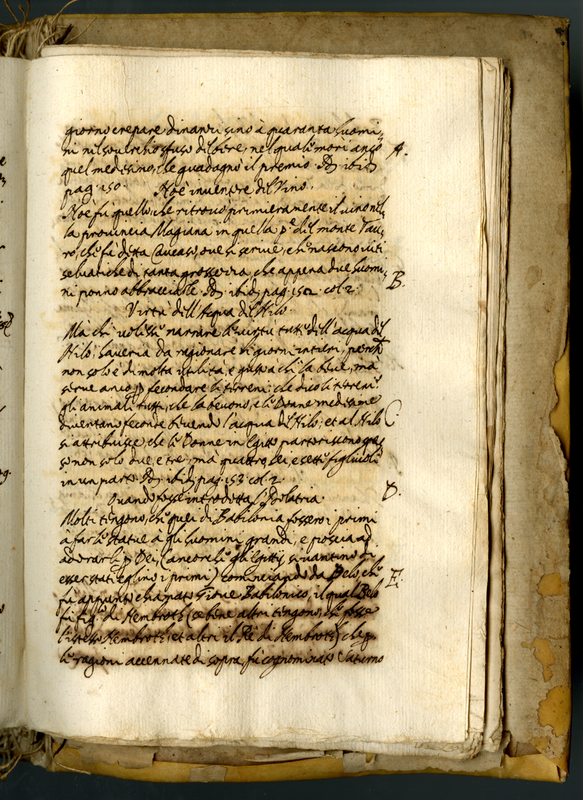 giorno crepare dinanzi sino à quaranta huomi,
ni nel quali morì anco
quel medesimo, che guadagnò il premio ibid
pag 150. Noè inventore del Vino.
Noè fù quello che ritrovò primieramente il vino nel,
la provincia Magiana in quella p.e del monte Tau,
ro, chi fù ditta Caucaso, ove si scrive, ch. nascono viti
selvatiche di tanta grossezza, che appena due huomi,
ni ponno abbracciarle ibid. pag. 152 col 2.
Virtù dell'Acqua del Nilo.
Ma chi volesse narrare le virtù tutte dell'acqua del
Nilo, haveria da ragionare gi giorni intieri, perch
non solo è di molta utilità, e gusto a chi la beve, ma
serve anco p fecondare li terreni; che dico li terreni
gli animali tutti, che la bevono, e le Donne medesime
diventano feconde bevendo l'acqua del Nilo; et al Nilo
si attribuisce, che le Donne in Egitto partoriscono spes
so non solo due, e tre, ma quattro, sei, e sette figliuoli
in un parto ibid. pag. 153 col 2.
Quando fosse introdotta l'Idolatria.
Molti tengono, che quei di Babilonia fossero i primi
à far le statue à gli huomini grandi, e poscia ad
adorarli p Dei, (ancorche gli Egittij si vantino di
esser stati eglino i primi) cominciando da Belo, che
fù appunto chiamato Giove Babilonico, il qual Belo
fù fig.o di Nembroth (se bene altri tengono, che fosse
l'istesso Nembroth, et altri il Pre di Nembroth) che p
le ragioni accennate di sopra fù cognominato Saturno
A.
B.
C.
D.
E.